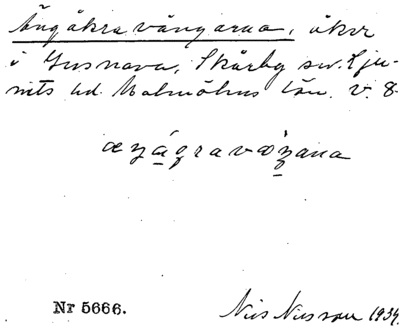 Ängåkravångarna, åker
i Gusnava, Skårby sn. Lju-
nits hd. Malmöhus län. v. 8.
Nr 5666.
Nils Nilsson 1934.